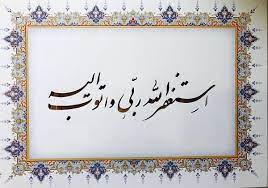 استغفرالله ربّی و اتوب الیه